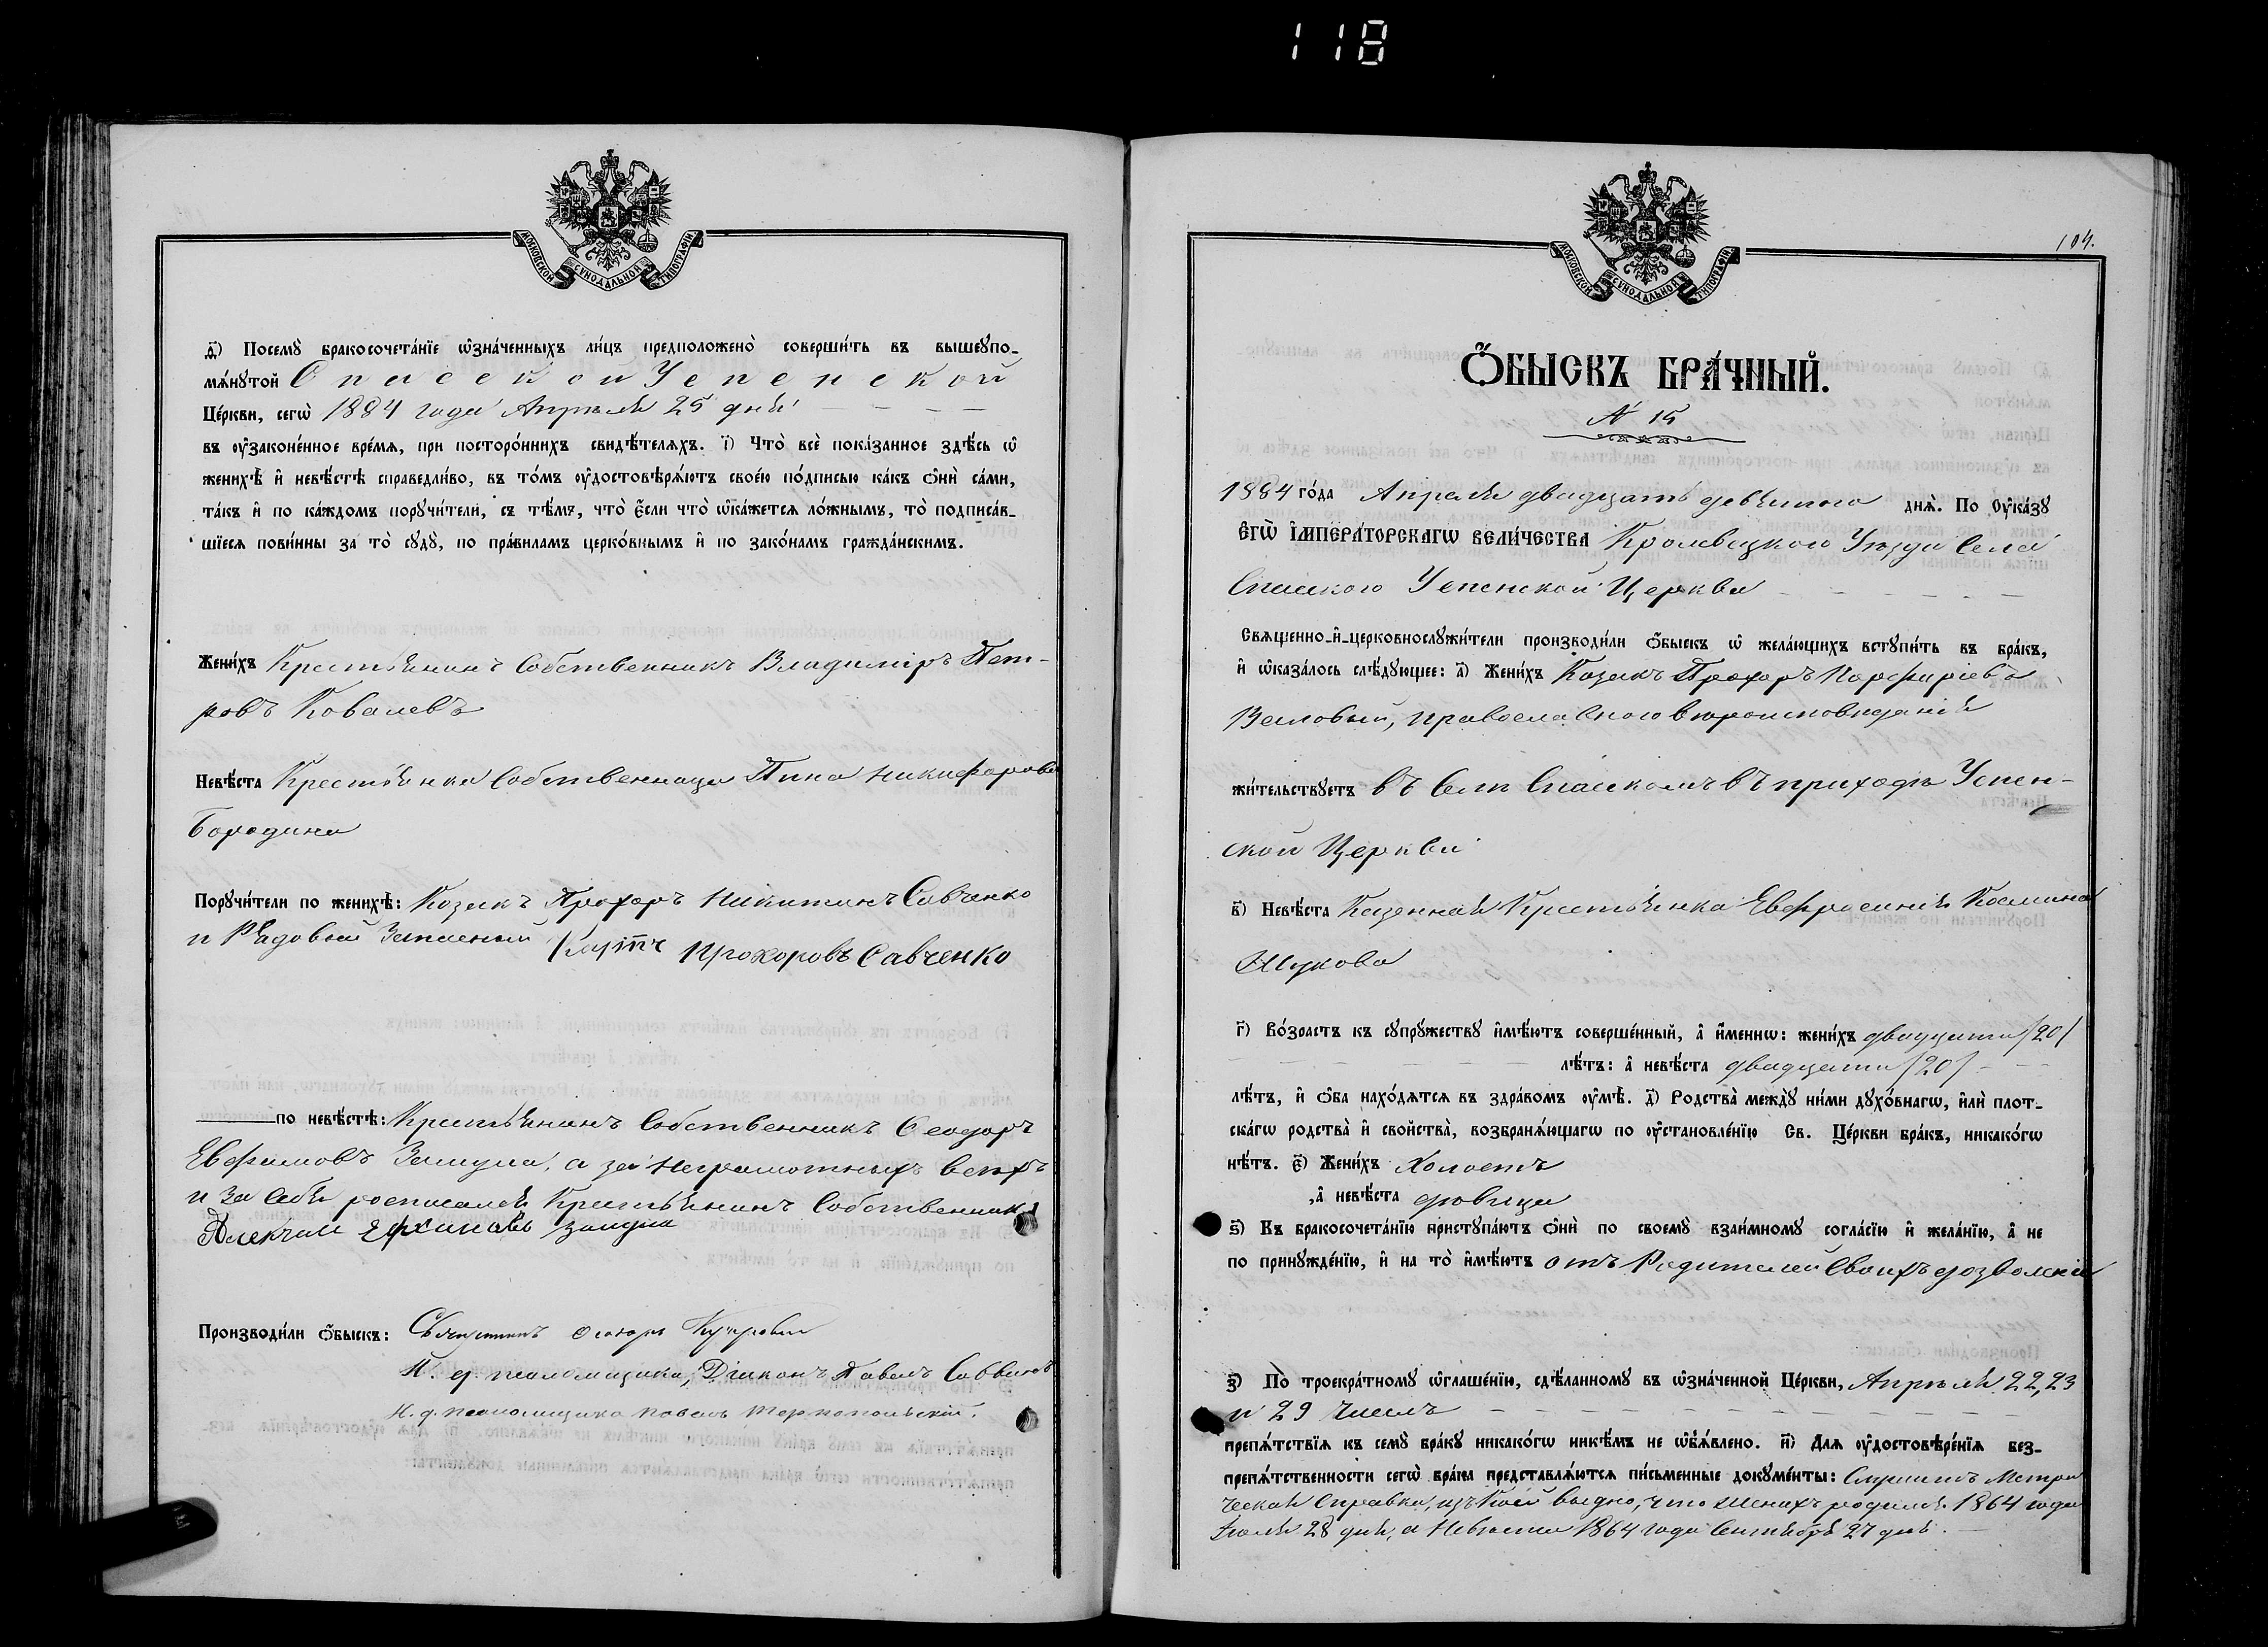 118
МОСКОВСКОЙ СѴНОДАЛЬНОЙ ТИПОГРАФІИ.
ѳ҃) Посемꙋ̀ бракосочета́нїе ѡ҆зна́ченныхъ ли́цъ предположено̀ соверши́ть въ вышеꙋпо-
мѧ́нꙋтой Спасской Успенской
Це́ркви, сегѡ̀ 1884 года Апрѣля 25 дня
въ ᲂу҆законе́нное вре́мѧ, при посторо́ннихъ свидѣ́телѧхъ. і҃) Что̀ всѐ пока́занное здѣ́сь ѡ҆
женихѣ̀ и҆ невѣ́стѣ справедли́во, въ то́мъ ᲂу҆достовѣрѧ́ютъ свое́ю по́дписью ка́къ ѻ҆нѝ са́ми,
та́къ и҆ по ка́ждомъ порꙋчи́тели, съ тѣ́мъ, что̀ є҆́сли что̀ ѡ҆ка́жетсѧ ло́жнымъ, то̀ подписа́в-
шїесѧ пови́нны за то̀ сꙋдꙋ̀, по пра́виламъ церко́внымъ и҆ по зако́намъ гражда́нскимъ.
Жени́хъ Крестьянинъ Собственникъ Владимиръ Пет-
ровъ Ковалевъ
Невѣ́ста Крестьянка Собственница Анна Никифорова
Бородина
Порꙋчи́тели по женихѣ̀: Козакъ Прохоръ Никитинъ Савченко
и Рядовый Запасный Карпъ Прохоровъ Савченко
по невѣ́стѣ: Крестьянинъ Собственникъ Ѳеодоръ
Евфимовъ Замула, а за неграмотныхъ всѣхъ
и за себя росписался Крестьянинъ Собственникъ
Алексѣй Замула
Производи́ли ѻ҆́быскъ: Священникъ
И. д. псаломщика, Діаконъ Павелъ Савви
И. д. псаломщика Павелъ Тернопольскій.
104.
МОСКОВСКОЙ СѴНОДАЛЬНОЙ ТИПОГРАФІИ.
Ѻ҆́БЫСКЪ БРА́ЧНЫЙ.
№ 15
1884 го́да Апреля двадцать девятого днѧ̀. По ᲂу҆ка́зꙋ
Є҆ГѠ̀ І҆МПЕРА́ТОРСКАГѠ ВЕЛИ́ЧЕСТВА Кролевецкого Уѣзда Села
Спасского Успенской Церкви
Свѧщенно-и҆-церковнослꙋжи́тели производи́ли ѻ҆́быскъ ѡ҆ жела́ющихъ встꙋпи́ть въ бра́къ,
и҆ ѡ҆каза́лось слѣ́дꙋющее: а҃) Жени́хъ Козакъ Прохоръ Порфиріевъ
Веловый, православного вѣроисповеданія
жи́тельствꙋетъ въ Селѣ Спасскомъ въ приходѣ Успен-
ской Церкви
в҃) Невѣ́ста Казенная Крестьянка Евфросинія Космина
Жукова
г҃) Во́зрастъ къ сꙋпрꙋ́жествꙋ и҆мѣ́ютъ соверше́нный, а҆ и҆́меннѡ: жени́хъ двадцати /20/
лѣ́тъ: а҆ невѣ́ста двадцати /20/
лѣ́тъ, и҆ ѻ҆́ба нахо́дѧтсѧ въ здра́вомъ ᲂу҆мѣ̀. д҃) Родства̀ междꙋ̀ ни́ми дꙋхо́внагѡ, и҆лѝ плот-
ска́гѡ родства̀ и҆ сво́йства, возбранѧ́ющагѡ по ᲂу҆становле́нїю Св. Це́ркви бра́къ, никако́гѡ
нѣ́тъ. є҃) Жени́хъ Холостъ
,а҆ невѣ́ста дѣвица
ѕ҃) Къ бракосочета́нїю пристꙋпа́ютъ ѻ҆нѝ по своемꙋ̀ взаи́мномꙋ согла́сїю и҆ жела́нїю, а҆ не
по принꙋжде́нїю, и҆ на то̀ и҆мѣ́ютъ отъ Родителей Своихъ дозволеніе
з҃) По̀ троекра́тномꙋ ѡ҆глаше́нїю, сдѣ́ланномꙋ въ ѡ҆зна́ченной Це́ркви, Апрѣля 22, 23
и 29 числъ
препѧ́тствїѧ къ семꙋ̀ бра́кꙋ никако́гѡ никѣ́мъ не ѡ҆б̾ѧ́влено. и҃) Длѧ ᲂу҆достовѣре́нїѧ без-
препѧ́тственности сегѡ̀ бра́ка представлѧ́ютсѧ пи́сьменные докꙋме́нты: Метри
ческая Справка, изъ коей видно, что женихъ родился 1864 года
Іюля 28 дня, а Невѣста 1864 года Сентября 27 дня.